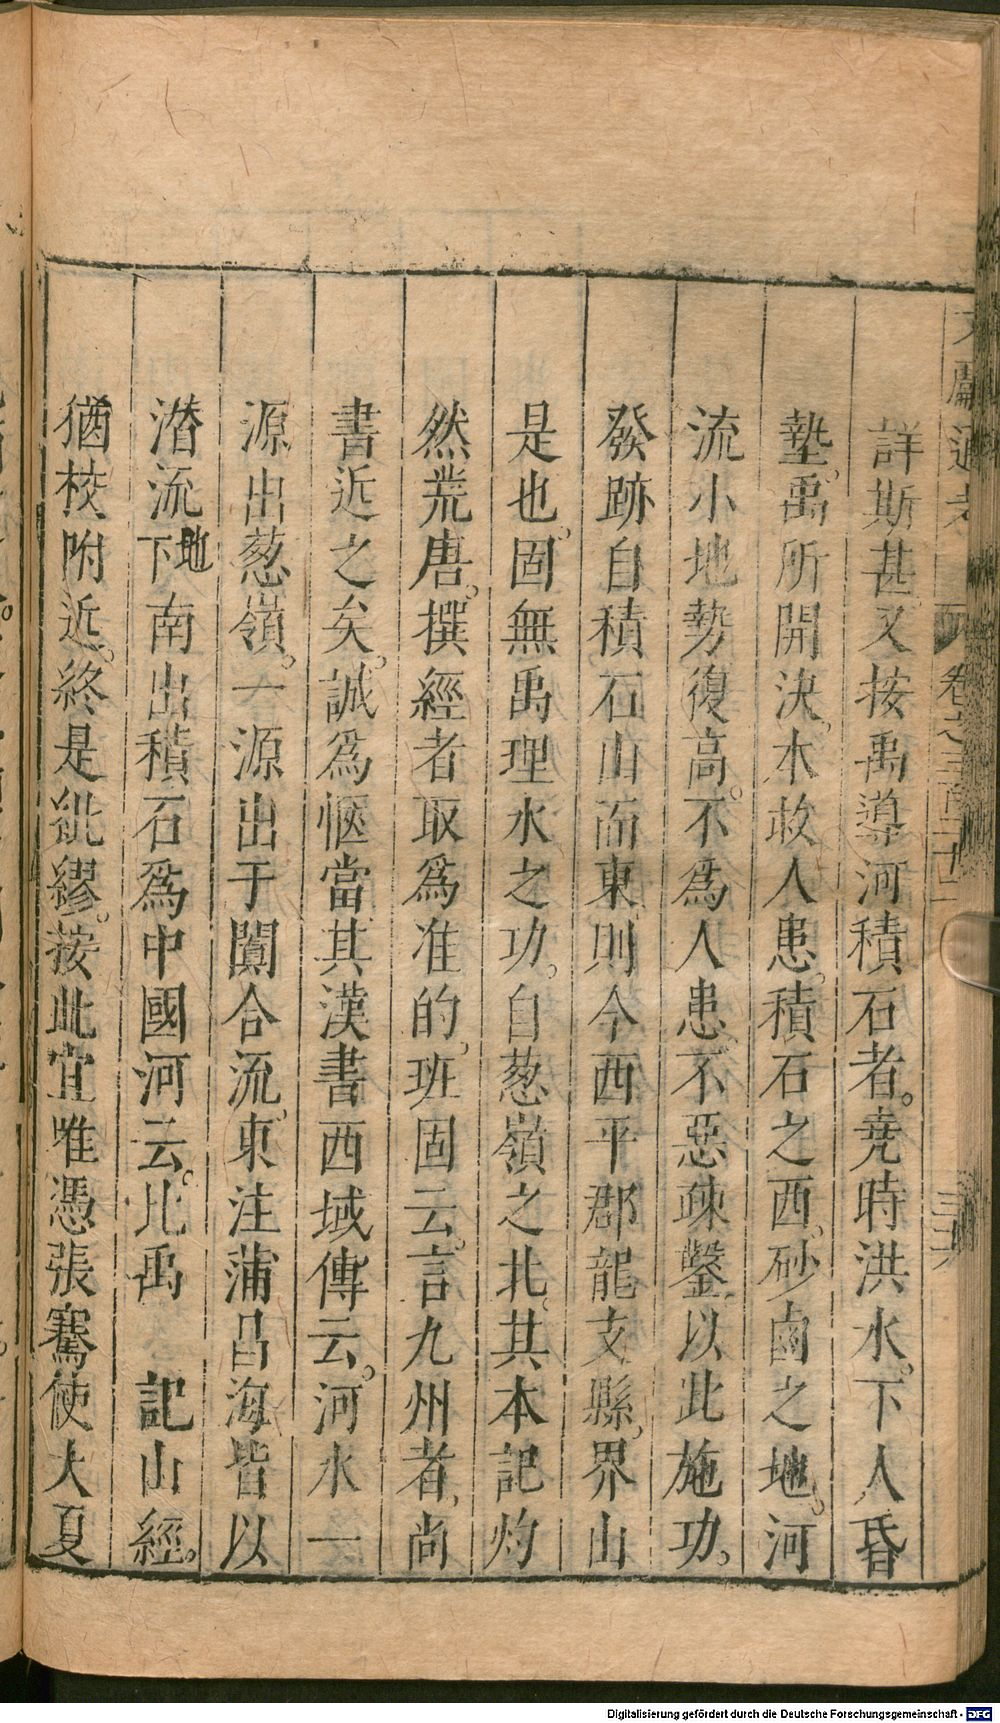 文獻通考 卷之三百二十二 三六
詳斯甚又按禹導河積石者。堯時洪水。下人昏
墊。禹所開決。本救人患。積石之西。砂鹵之地。河
流小地勢復高。不爲人患。不惡疎鑿。以此施功。
發跡自積石山而東。則今西平郡龍支縣。界山
是也。固無禹理水之功。自葱嶺之北。其本記灼
然荒唐。撰經者取爲准的。班固云。言九州者。尚
書近之矣。誠爲愜當其漢書西域傳云。河水一
源出葱嶺。一源出于闐合流。東注蒲昌海皆以
潛流地下南出積石爲中國河云。比禹 記山經。
猶校附近。終是紕繆。按此宜唯憑張騫使大夏
Digitalisierung gefördert durch die Deutsche Forschungsgemeinschaft - DFG